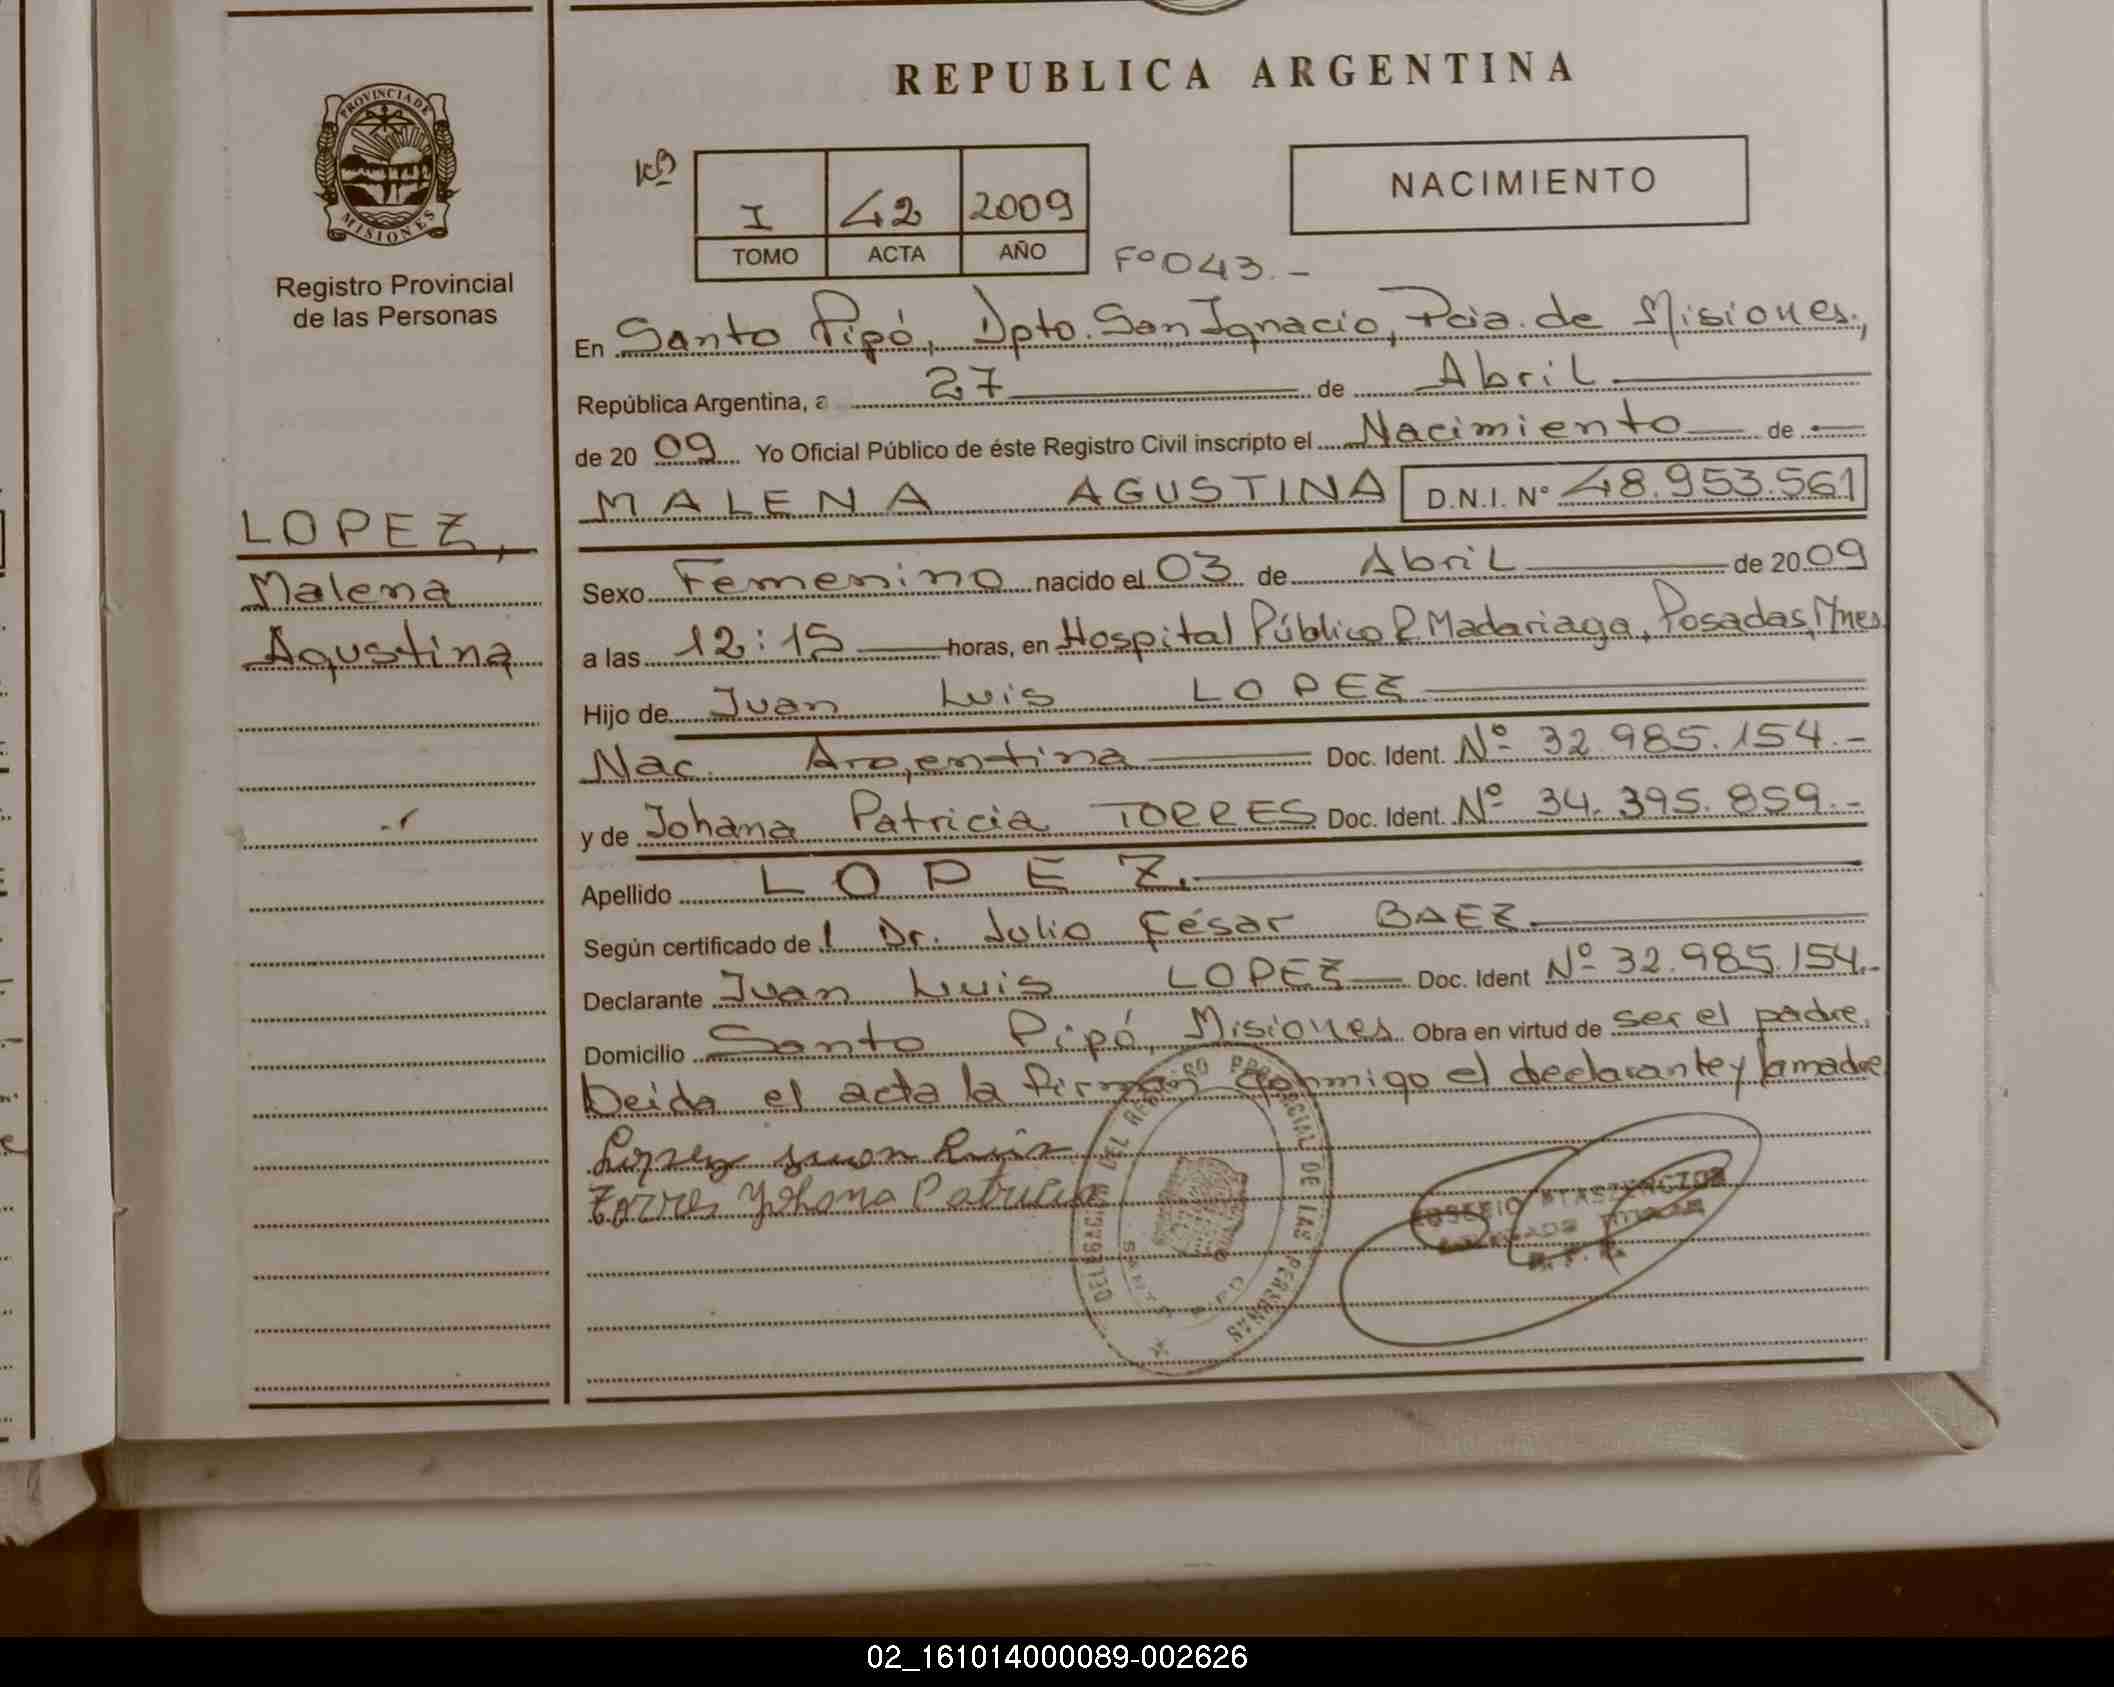 REPUBLICA ARGENTINA
PROVINCIA DE
MISIONES
Registro Provincial
de las Personas
I 42 2009
TOMO ACTA AÑO
Fº 043.-
NACIMIENTO
En Santo Pipó, Dpto. San Ignacio, Pcia. de Misiones,
República Argentina, a 27 de Abril
de 2009 Yo Oficial Público de éste Registro Civil inscripto el Nacimiento de
MALENA AGUSTINA D.N.I. Nº 48.953.561
LOPEZ,
Malena
Agustina
Sexo Femenino nacido el 03 de Abril de 2009
a las 12:15 horas, en Hospital Público R. Madariaga, Posadas, Mnes.
Hijo de Juan Luis LOPEZ
Nac. Argentina Doc. Ident. Nº 32.985.154.-
y de Johana Patricia TORRES Doc. Ident. Nº 34.395.859.-
Apellido LOPEZ.
Según certificado de l Dr. Julio César BAEZ
Declarante Juan Luis LOPEZ Doc. Ident Nº 32.985.154.-
Domicilio Santo Pipó, Misiones Obra en virtud de ser el padre.
Leida el acta la firman conmigo el declarante y la madre
Lopez Juan Luis
Torres Yohana Patricia
DEL REGISTRO PROVINCIAL DE LAS PERSONAS
02_161014000089-002626